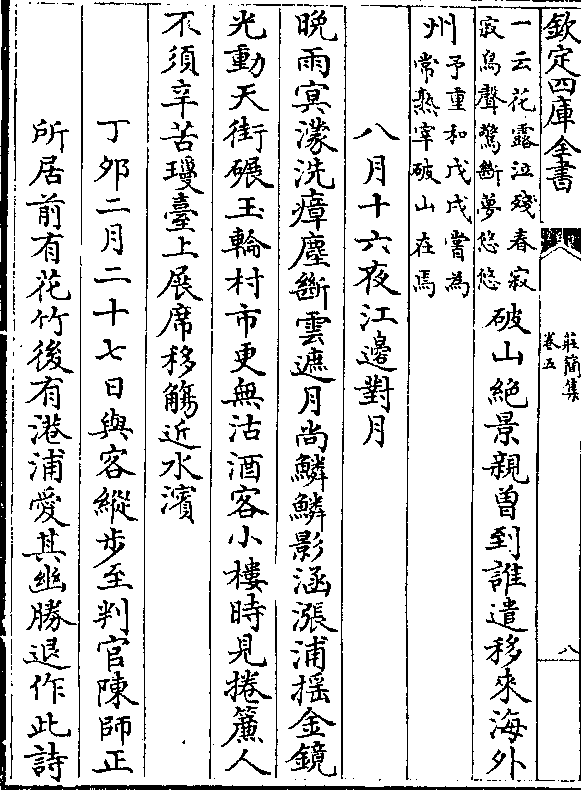 欽定四庫全書
莊簡集
卷五
八
一云花露泣殘春寂
寂鳥聲驚斷夢悠悠
破山絶景親曾到誰遣移來海外
州
予重和戊戌嘗為
常熟宰破山在焉
八月十六夜江邊對月
晩雨𡨕濛洗瘴塵斷雲遮月尚鱗鱗影涵漲浦揺金鏡
光動天街碾玉輪村市更無沽酒客小樓時見捲簾人
不須辛苦瓊臺上展席移觴近水濱
丁夘二月二十七日與客縱步至判官陳師正
所居前有花竹後有港浦愛其幽勝退作此詩